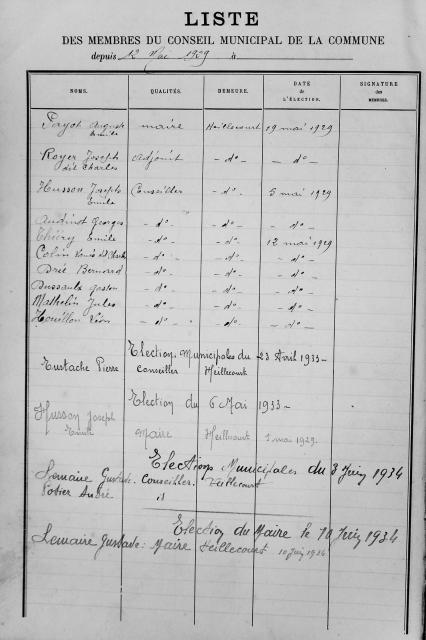 LISTE
DES MEMBRES DU CONSEIL MUNICIPAL DE LA COMMUNE
depuis 12 Mai 1929 à
NOMS. QUALITÉS. DEMEURE. DATE DE L'ÉLECTION. SIGNATURE des MEMBRES.
Payot Auguste maire Heillecourt 19 mai 1929
Emile
Royer Joseph Adjoint - do - - do -
dit Charles
Husson Joseph Conseiller - do - 5 mai 1929
Emile
Audinot Georges - do - - do - - do -
Thiéry Emile - do - - do - 12 mai 1929
Colin Louis - do - - do - - do -
Brié Bernard - do - - do - - do -
Dussaulx Gaston - do - - do - - do -
Mathelin Jules - do - - do - - do -
Houillon Léon - do - - do - - do -
Election Municipales du 23 Avril 1933 -
Eustache Pierre Conseiller Heillecourt
Election du 6 Mai 1933 -
Husson Joseph
Emile Maire Heillecourt mai 1929
Elections Municipales du 3 Juin 1934
Lemaire Gustave. Conseiller. Heillecourt
Potier André id
Election du Maire le 10 Juin 1934
Lemaire Gustave : Maire Heillecourt 10 Juin 1934